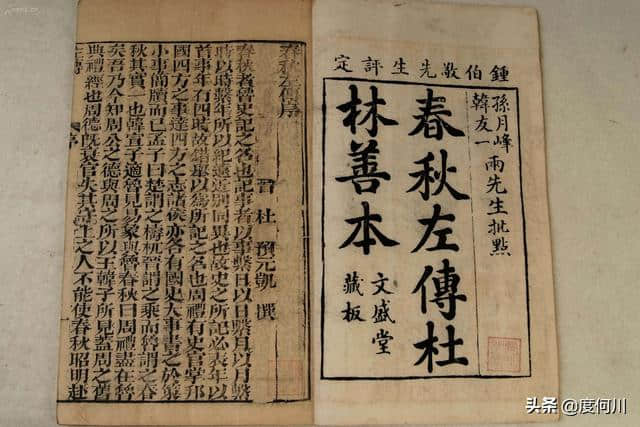 鍾伯敬先生評定
孫月峰
韓友一
兩先生批點
春秋左傳杜
林善本
文盛堂
藏板
春秋左傳序
晉 杜 預元凱 撰
春秋者魯史記之名也記事者以事繫日以日繫月以月繫
時以時繫年所以紀遠近別同異也故史之所記必表年以
首事年有四時故錯舉以爲所記之名也周禮有史官掌邦
國四方之事達四方之志諸侯亦各有國史大事書之於策
小事簡牘而已孟子曰楚謂之檮杌晉謂之乘而魯謂之春
秋其實一也韓宣子適魯見易象與魯春秋曰周禮盡在魯
矣吾乃今知周公之德與周之所以王韓子所見蓋周之舊
典禮經也周德既衰官失其守上之人不能使春秋昭明赴
序
头条 @度何川